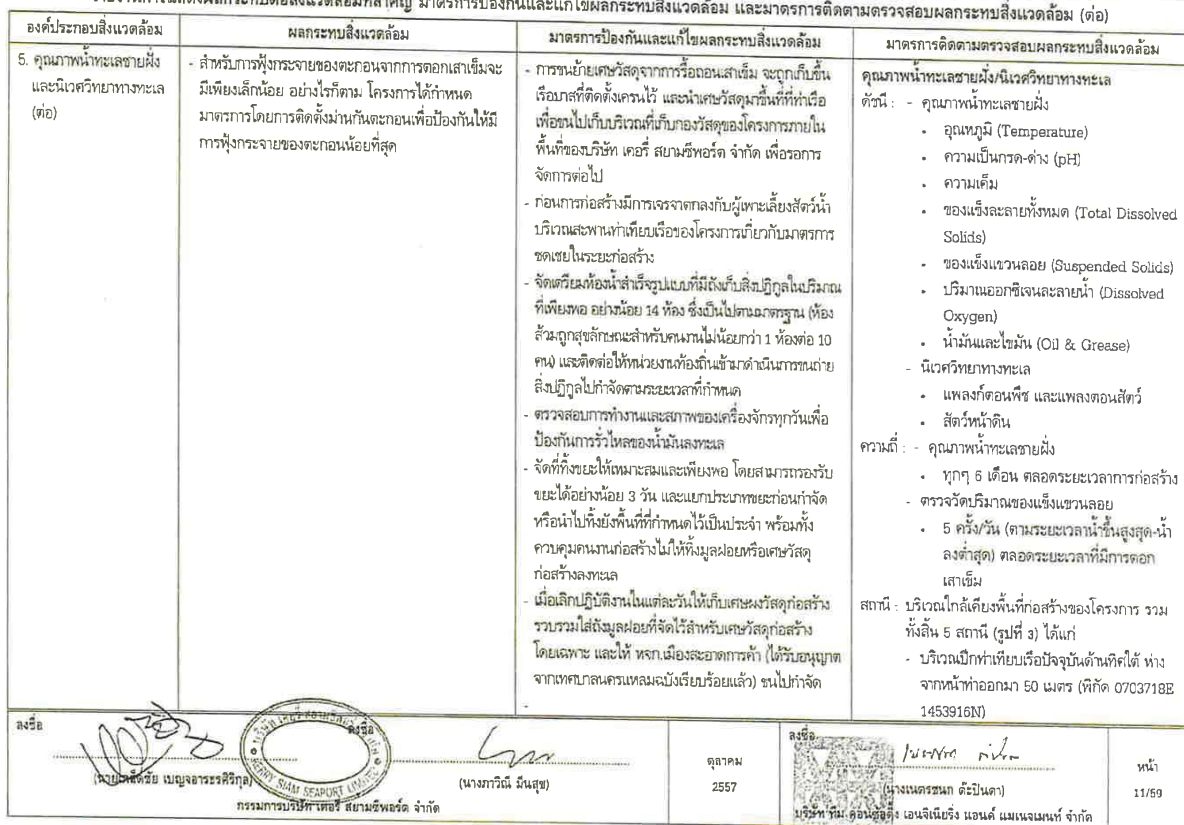 ผลกระทบสิ่งแวดล้อมที่สำคัญ มาตรการป้องกันและแก้ไขผลกระทบสิ่งแวดล้อม และมาตรการติดตามตรวจสอบผลกระทบสิ่งแวดล้อม (ต่อ)
องค์ประกอบสิ่งแวดล้อม
ผลกระทบสิ่งแวดล้อม
มาตรการป้องกันและแก้ไขผลกระทบสิ่งแวดล้อม
มาตรการติดตามตรวจสอบผลกระทบสิ่งแวดล้อม
5. คุณภาพน้ำทะเลชายฝั่ง
และนิเวศวิทยาทางทะเล
(ต่อ)
- สำหรับการฟุ้งกระจายของตะกอนจากการตอกเสาเข็มจะ
มีเพียงเล็กน้อย อย่างไรก็ตาม โครงการได้กำหนด
มาตรการโดยการติดตั้งม่านกันตะกอนเพื่อป้องกันให้มี
การฟุ้งกระจายของตะกอนน้อยที่สุด
- การขนย้ายเศษวัสดุจากการรื้อถอนเสาเข็ม จะถูกเก็บขึ้น
เรือบาสที่ติดตั้งเครนไว้ และนำเศษวัสดุมาขึ้นที่ท่าเรือ
เพื่อขนไปเก็บบริเวณที่เก็บกองวัสดุของโครงการภายใน
พื้นที่ของบริษัท เคอรี่ สยามซีพอร์ต จำกัด เพื่อรอการ
จัดการต่อไป
- ก่อนการก่อสร้างมีการเจรจาตกลงกับผู้เพาะเลี้ยงสัตว์น้ำ
บริเวณสะพานท่าเทียบเรือของโครงการเกี่ยวกับมาตรการ
ชดเชยในระยะก่อสร้าง
- จัดเตรียมห้องน้ำสำเร็จรูปแบบที่มีถังเก็บสิ่งปฏิกูลในปริมาณ
ที่เพียงพอ อย่างน้อย 14 ห้อง ซึ่งเป็นไปตามมาตรฐาน (ห้อง
ส้วมถูกสุขลักษณะสำหรับคนงานไม่น้อยกว่า 1 ห้องต่อ 10
คน) และติดต่อให้หน่วยงานท้องถิ่นเข้ามาดำเนินการขนถ่าย
สิ่งปฏิกูลไปกำจัดตามระยะเวลาที่กำหนด
- ตรวจสอบการทำงานและสภาพของเครื่องจักรทุกวันเพื่อ
ป้องกันการรั่วไหลของน้ำมันลงทะเล
- จัดที่ทิ้งขยะให้เหมาะสมและเพียงพอ โดยสามารถรองรับ
ขยะได้อย่างน้อย 3 วัน และแยกประเภทขยะก่อนกำจัด
หรือนำไปทิ้งยังพื้นที่ที่กำหนดไว้เป็นประจำ พร้อมทั้ง
ควบคุมคนงานก่อสร้างไม่ให้ทิ้งมูลฝอยหรือเศษวัสดุ
ก่อสร้างลงทะเล
- เมื่อเลิกปฏิบัติงานในแต่ละวันให้เก็บเศษผงวัสดุก่อสร้าง
รวบรวมใส่ถังมูลฝอยที่จัดไว้สำหรับเศษวัสดุก่อสร้าง
โดยเฉพาะ และให้ หจก.เมืองสะอาดการค้า (ได้รับอนุญาต
จากเทศบาลนครแหลมฉบังเรียบร้อยแล้ว) ขนไปกำจัด
-
คุณภาพน้ำทะเลชายฝั่ง/นิเวศวิทยาทางทะเล
ดัชนี : - คุณภาพน้ำทะเลชายฝั่ง
• อุณหภูมิ (Temperature)
• ความเป็นกรด-ด่าง (pH)
• ความเค็ม
• ของแข็งละลายทั้งหมด (Total Dissolved
Solids)
• ของแข็งแขวนลอย (Suspended Solids)
• ปริมาณออกซิเจนละลายน้ำ (Dissolved
Oxygen)
• น้ำมันและไขมัน (Oil & Grease)
- นิเวศวิทยาทางทะเล
• แพลงก์ตอนพืช และแพลงตอนสัตว์
• สัตว์หน้าดิน
ความถี่ : - คุณภาพน้ำทะเลชายฝั่ง
• ทุกๆ 6 เดือน ตลอดระยะเวลาการก่อสร้าง
- ตรวจวัดปริมาณของแข็งแขวนลอย
• 5 ครั้ง/วัน (ตามระยะเวลาน้ำขึ้นสูงสุด-น้ำ
ลงต่ำสุด) ตลอดระยะเวลาที่มีการตอก
เสาเข็ม
สถานี : บริเวณใกล้เคียงพื้นที่ก่อสร้างของโครงการ รวม
ทั้งสิ้น 5 สถานี (รูปที่ 3) ได้แก่
- บริเวณปีกท่าเทียบเรือปัจจุบันด้านทิศใต้ ห่าง
จากหน้าท่าออกมา 50 เมตร (พิกัด 0703718E
1453916N)
ลงชื่อ
ลงชื่อ
เบญจอาระรศิริกุล)
KERRY SIAM SEAPORT LIMITED
(นางภาวิณี มีนสุข)
กรรมการบริษัท เคอรี่ สยามซีพอร์ต จำกัด
ตุลาคม
2557
ลงชื่อ
(นางเนตรชนก ต๊ะปินตา)
บริษัท ทีม คอนซัลติ้ง เอนจิเนียริ่ง แอนด์ แมเนจเมนท์ จำกัด
หน้า
11/59